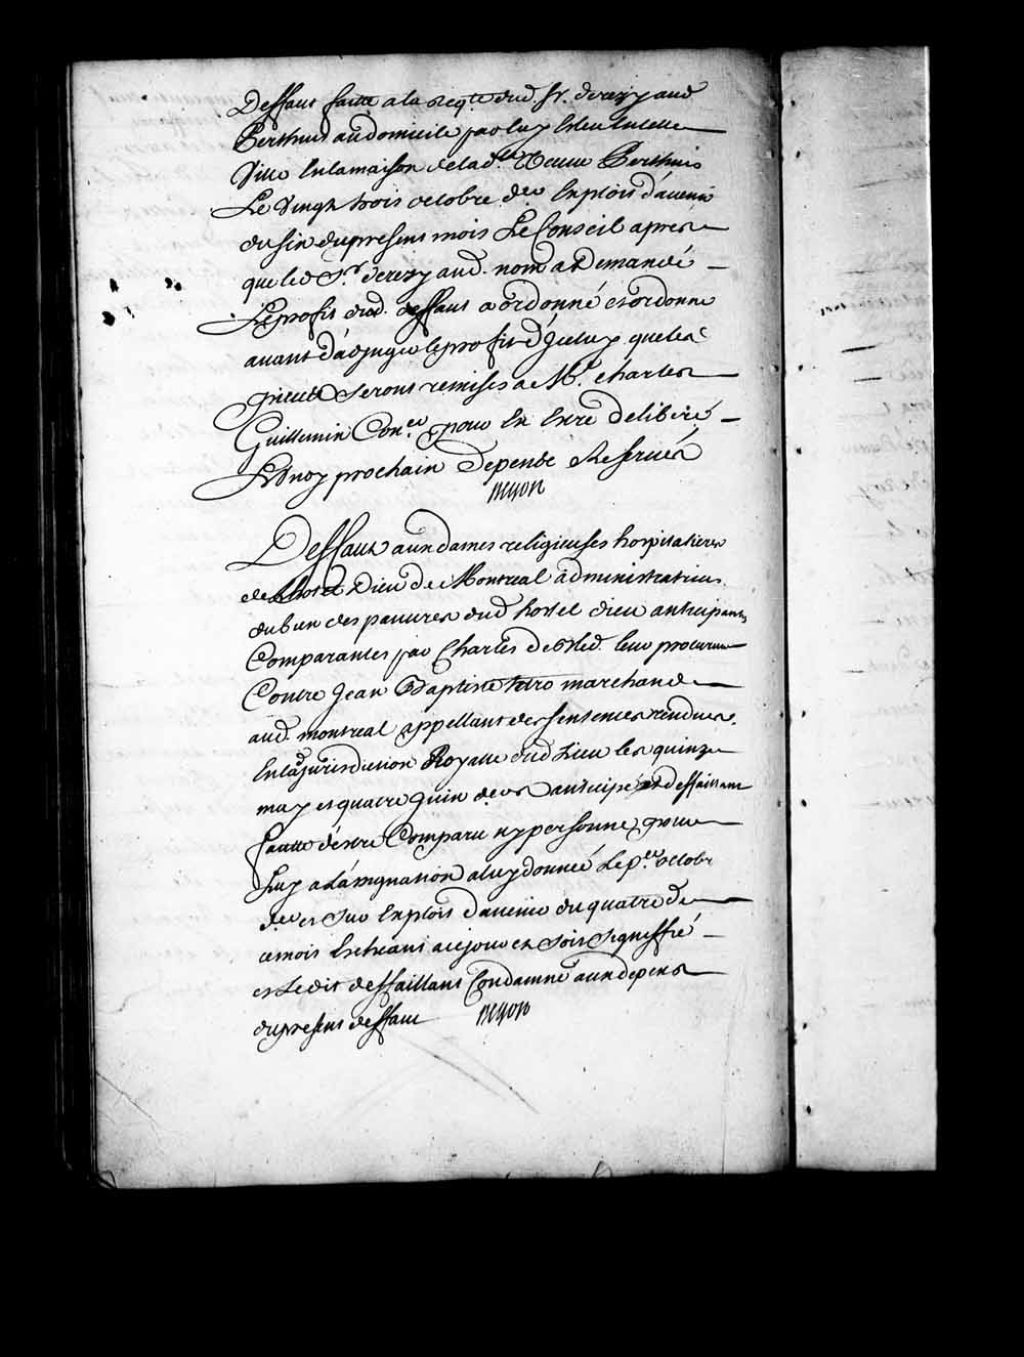 Deffaut faitte a la reqte dud. Sr. derezy aud
Berthuis au domicile par luy Esleu En cette
Ville En la maison de lad. Veuve Berthuis
Le Vingt trois octobre der Exploit d'avenir
du six du present mois Le Conseil apres
que led Sr derezy aud. nom a Demandé
Le profit dud. deffaut a ordonné et ordonne
avant d'adjuger le profit d'Jceluy que les
pieces Seront remises a Me. charles
Guillimin Coner pour En Estre deliberé
Lundy prochain Depens Reservés
Deffaut aux dames religieuses hospitalieres
de Lhotel Dieu de Montreal administratrices
du bien des pauvres dud hostel dieu anticipantes
Comparantes par Charles de Med. leur procureur
Contre Jean Baptiste tetro marchand
aud. montreal appellant des sentences rendues
En la Jurisdiction Royalle dud Lieu les quinze
may et quatre Juin der anticipé et deffaillant
fautte d'estre Comparu ny personne pour
Luy a L'assignation a luy donnée Le per octobre
der et Sur Exploit d'avenir du quatre de
ce mois Escheant a ce jour et Soit Signiffié
et Ledit deffaillant Condamné aux depens
du present deffaut